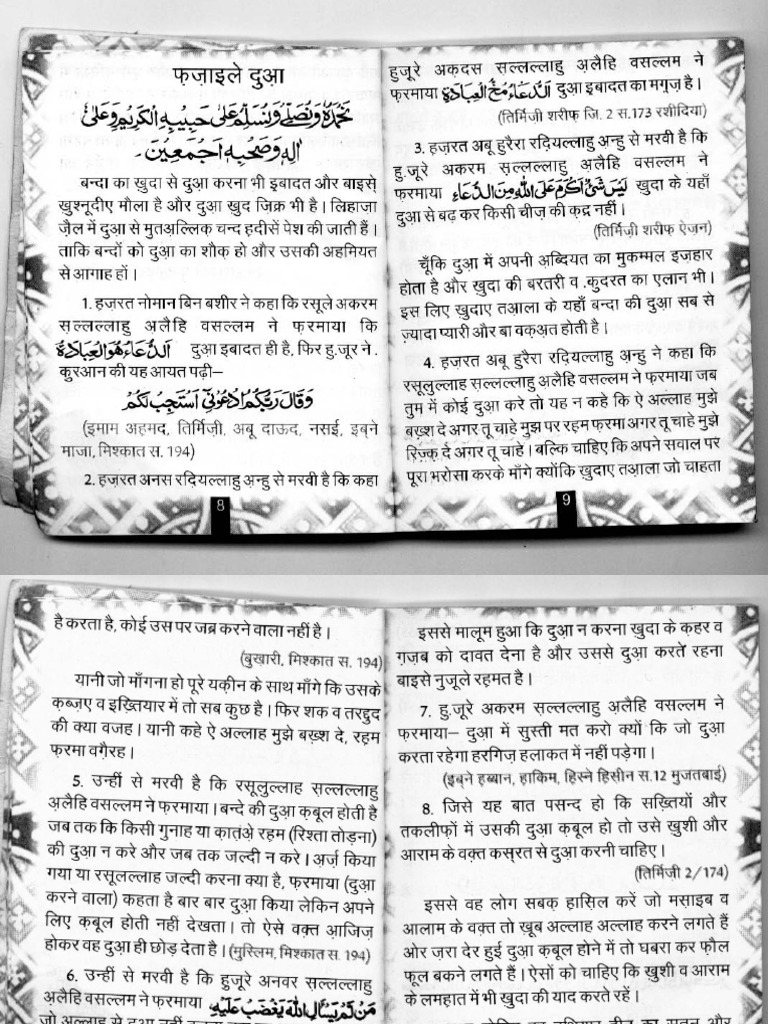 फ़ज़ाइले दुआ
نَحْمَدُهٗ وَنُصَلِّیْ وَنُسَلِّمُ عَلیٰ حَبِیْبِهِ الْکَرِیْمِ وَعَلیٰ
اٰلِهٖ وَصَحْبِهٖ اَجْمَعِیْنَ۔
बन्दा का ख़ुदा से दुआ करना भी इबादत और बाइसे
ख़ुश्नूदीए मौला है और दुआ खुद जिक्र भी है। लिहाजा
ज़ैल में दुआ से मुतअ़ल्लिक़ चन्द हदीसें पेश की जाती हैं।
ताकि बन्दों को दुआ का शौक़ हो और उसकी अहमियत
से आगाह हों।
1. हज़रत नोमान बिन बशीर ने कहा कि रसूले अकरम
स़ल्लल्लाहु अ़लैहि वसल्लम ने फ़रमाया कि
اَلدُّعَاءُ هُوَ الْعِبَادَةُ दुआ इबादत ही है, फिर हु.जूर ने .
क़ुरआन की यह आयत पढ़ी–
وَقَالَ رَبُّکُمُ ادْعُوْنِیْ اَسْتَجِبْ لَکُمْ
(इमाम अहमद, तिर्मिज़ी, अबू दाऊद, नसई, इब़्ने
माजा, मिश्कात स. 194)
2. हज़रत अनस रदियल्लाहु अ़न्हु से मरवी है कि कहा
8
हुजूरे अक़दस स़ल्लल्लाहु अ़लैहि वसल्लम ने
फ़रमाया اَلدُّعَاءُ مُخُّ الْعِبَادَةِ दुआ इबादत का मग़्ज़ है।
(तिर्मिज़ी शरीफ़ जि. 2 स.173 रशीदिया)
3. हज़रत अबू हुरैरा रदियल्लाहु अ़न्हु से मरवी है कि
हु.जूरे अकरम स़ल्लल्लाहु अ़लैहि वसल्लम ने
फ़रमाया لَیْسَ شَیْءٌ اَکْرَمُ عَلَی اللّٰهِ مِنَ الدُّعَاءِ ख़ुदा के यहाँ
दुआ से बढ़ कर किसी चीज़ की क़द्र नहीं।
(तिर्मिज़ी शरीफ़ ऐज़न)
चूँकि दुआ में अपनी अ़ब्दियत का मुकम्मल इज़हार
होता है और ख़ुदा की बरतरी व .कुदरत का एलान भी।
इस लिए ख़ुदाए तआ़ला के यहाँ बन्दा की दुआ सब से
ज़्यादा प्यारी और बा वक़्अ़त होती है।
4. हज़रत अबू हुरैरा रदियल्लाहु अ़न्हु ने कहा कि
रसूलुल्लाह स़ल्लल्लाहु अ़लैहि वसल्लम ने फ़रमाया जब
तुम में कोई दुआ करे तो यह न कहे कि ऐ अल्लाह मुझे
बख़्श दे अगर तू चाहे मुझ पर रहम फ़रमा अगर तू चाहे मुझे
रिज़्क़ दे अगर तू चाहे। बल्कि चाहिए कि अपने सवाल पर
पूरा भरोसा करके माँगे क्योंकि ख़ुदाए तआ़ला जो चाहता
9
है करता है, कोई उस पर जब्र करने वाला नहीं है।
(बुख़ारी, मिश्कात स. 194)
यानी जो माँगना हो पूरे यक़ीन के साथ माँगे कि उसके
क़ब्ज़ए व इख़्तियार में तो सब कुछ है। फिर शक व तरद्दुद
की क्या वजह। यानी कहे ऐ अल्लाह मुझे बख़्श दे, रहम
फ़रमा वग़ैरह।
5. उन्हीं से मरवी है कि रसूलुल्लाह स़ल्लल्लाहु
अ़लैहि वसल्लम ने फ़रमाया। बन्दे की दुआ क़बूल होती है
जब तक कि किसी गुनाह या क़ात़अ़े रहम (रिश्ता तोड़ना)
की दुआ न करे और जब तक जल्दी न करे। अ़र्ज़ किया
गया या रसूलल्लाह जल्दी करना क्या है, फ़रमाया (दुआ
करने वाला) कहता है बार बार दुआ किया लेकिन अपने
लिए क़बूल होती नहीं देखता। तो ऐसे वक़्त आ़जिज़
होकर वह दुआ ही छोड़ देता है। (मुस्लिम, मिश्कात स. 194)
6. उन्हीं से मरवी है कि हुजूरे अनवर स़ल्लल्लाहु
अ़लैहि वसल्लम ने फ़रमाया مَنْ لَّمْ یَسْأَلِ اللّٰهَ یَغْضَبْ عَلَیْهِ
जो अल्लाह से दुआ नहीं करता
इससे मालूम हुआ कि दुआ न करना ख़ुदा के क़हर व
ग़ज़ब को दावत देना है और उससे दुआ करते रहना
बाइसे नुज़ूले रहमत है।
7. हु.जूरे अकरम स़ल्लल्लाहु अ़लैहि वसल्लम ने
फ़रमाया– दुआ में सुस्ती मत करो क्यों कि जो दुआ
करता रहेगा हरगिज़ हलाकत में नहीं पड़ेगा।
(इब़्ने हब्बान, हाकिम, हिस्ने हिसीन स.12 मुजतबाई)
8. जिसे यह बात पसन्द हो कि सख़्तियों और
तकलीफ़ों में उसकी दुआ क़बूल हो तो उसे ख़ुशी और
आराम के वक़्त कस़रत से दुआ करनी चाहिए।
(तिर्मिजी 2/174)
इससे वह लोग सबक़ हा़सिल करें जो मस़ाइब व
आलाम के वक़्त तो ख़ूब अल्लाह अल्लाह करने लगते हैं
ओर ज़रा देर हुई दुआ क़बूल होने में तो घबरा कर फ़ौल
फूल बकने लगते हैं। ऐसों को चाहिए कि ख़ुशी व आराम
के लमहात में भी खुदा की याद करते रहें।